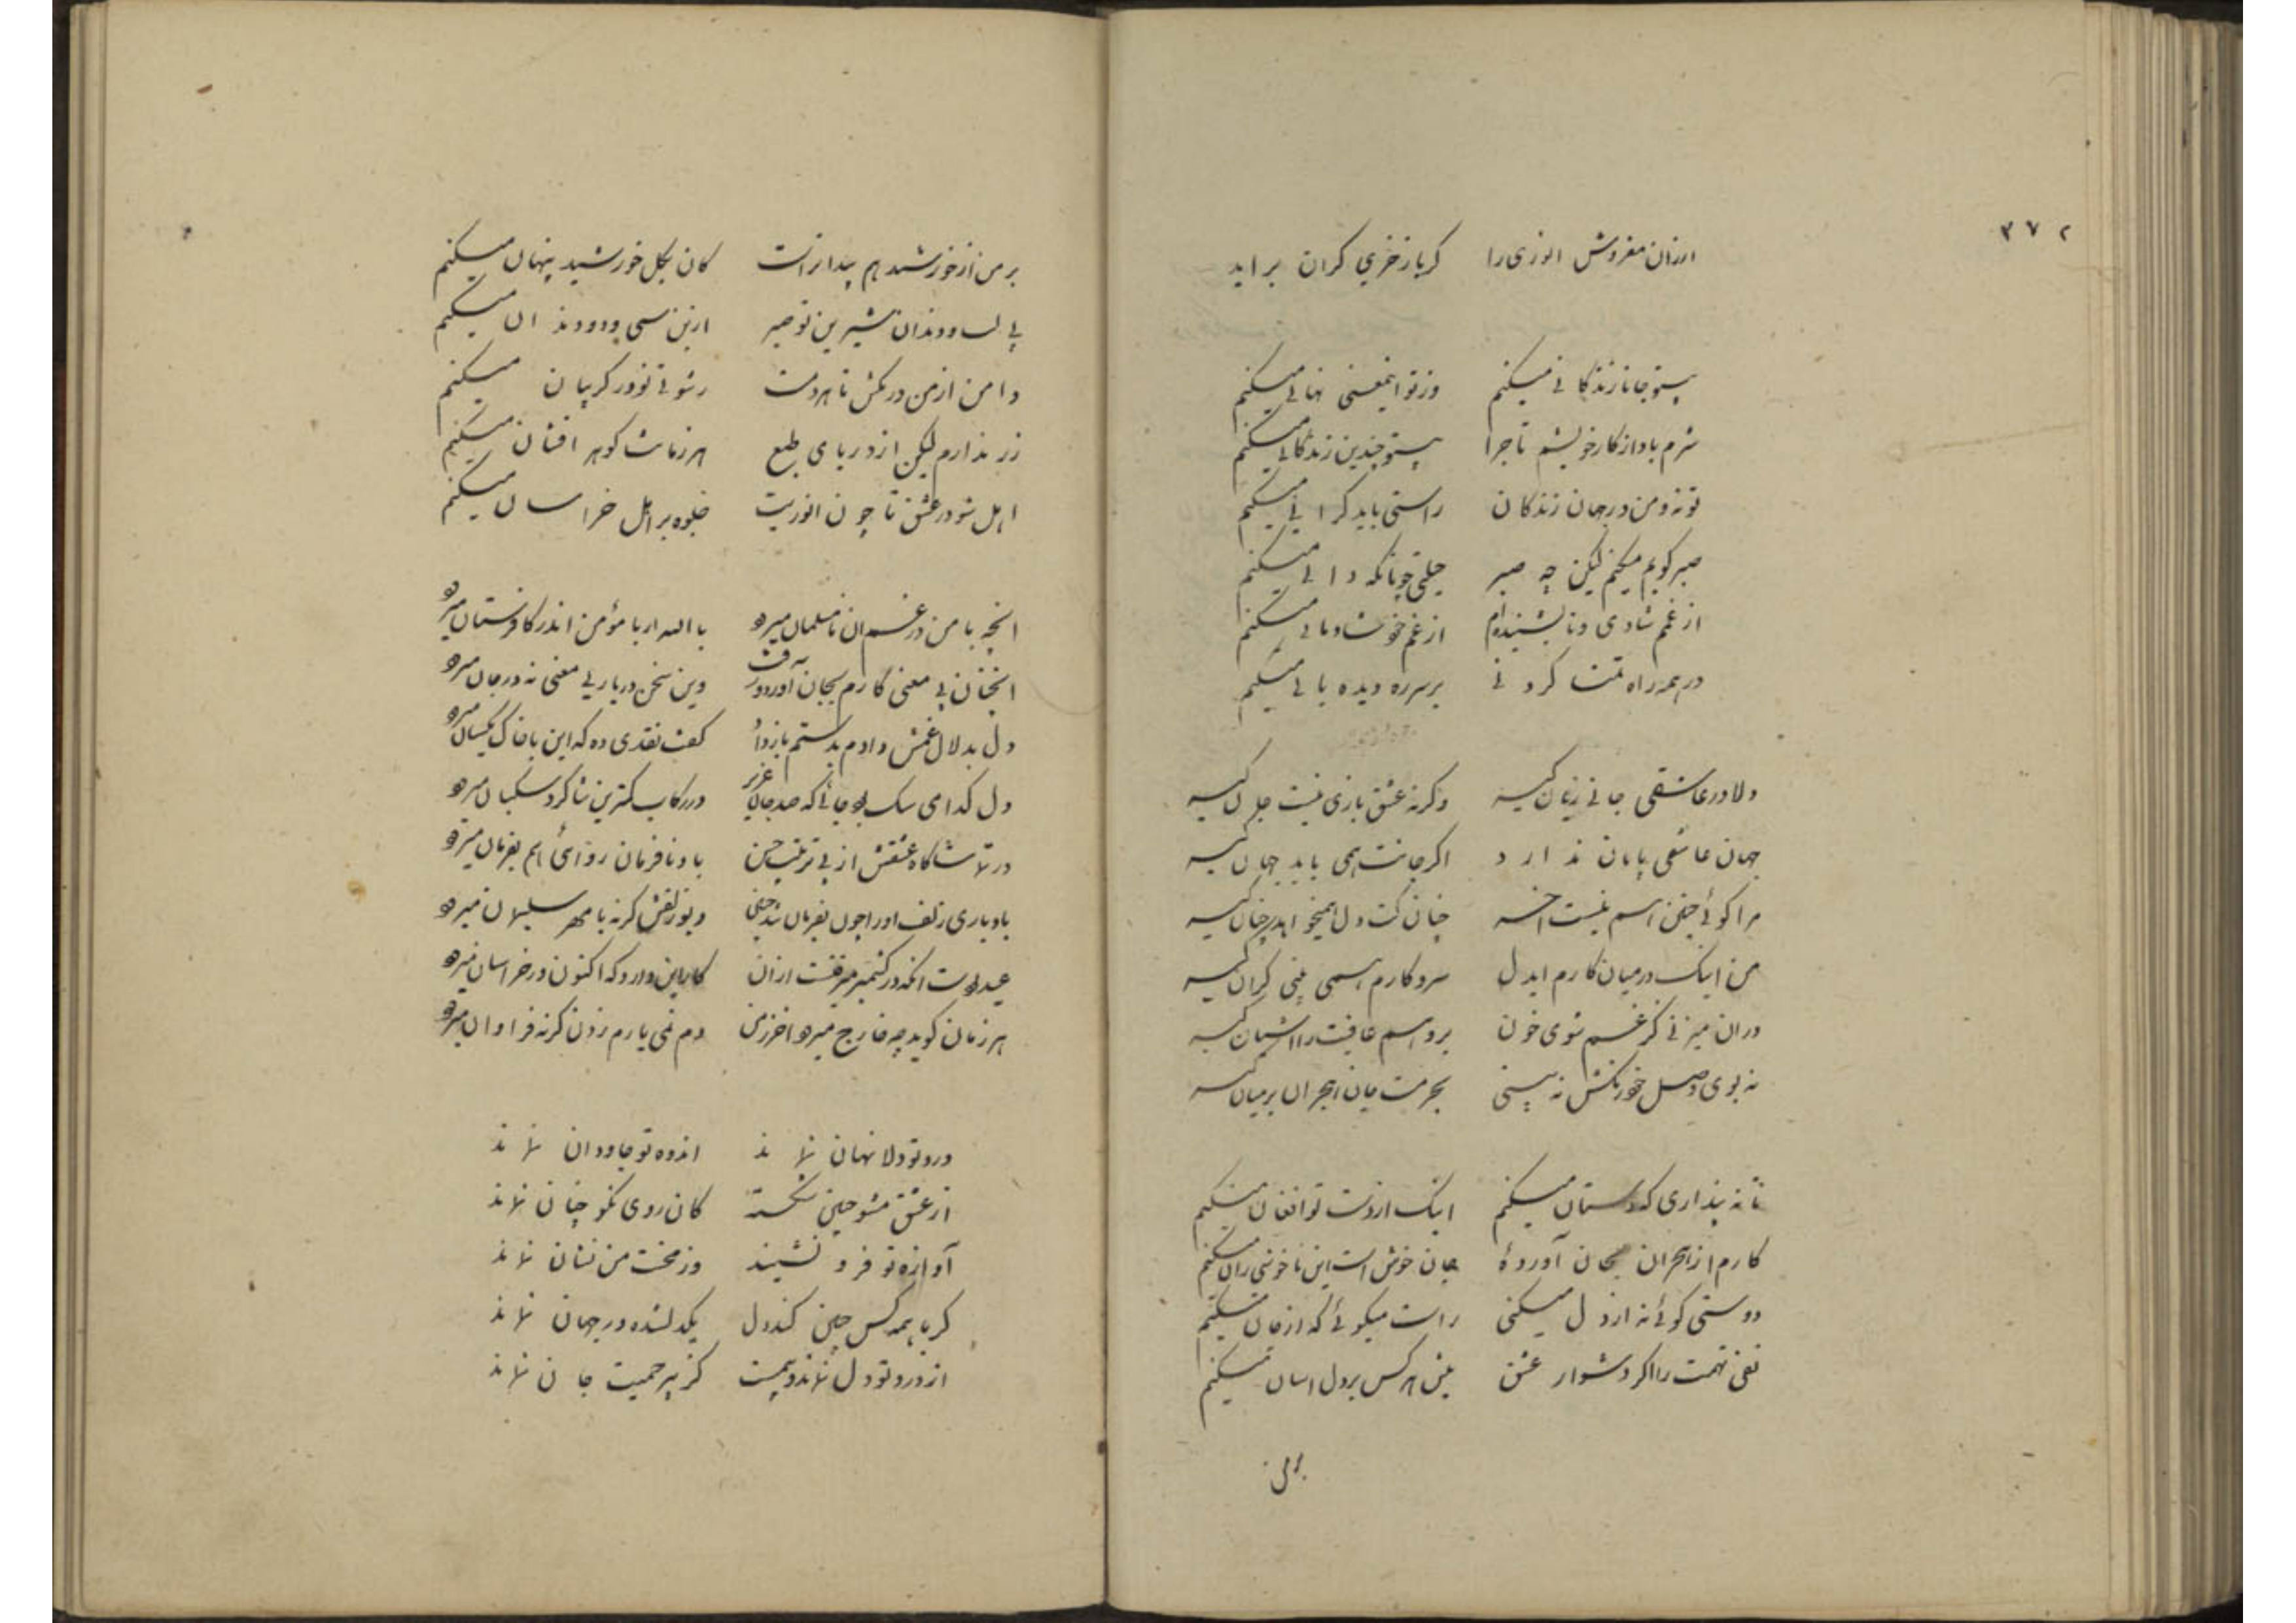 ۳۷۲
ارزان مفروش انوری را کر باز خری کران براید
بیتو جانا زندکانی میکنم وز تو اینمعنی نهانی میکنم
شرم باد از کار خویشم تا چرا بیتو چندین زندکانی میکنم
تو نه و من در جهان زندکان راستی باید کرانی میکنم
صبر کویم میکنم لیکن چه صبر حیلتی چونانکه دانی میکنم
از غم شادی و تا بشنیده‌ام از غم خود شادمانی میکنم
در همه راه تمنا کردنی بر سر ره دیده بانی میکنم
دلا در عاشقی جانی زیان کیر وکرنه عشق بازی نیست جان کیر
جهان عاشقی پایان ندارد اکر جانت همی باید جهان کیر
مرا کوئی چنین هم نیست اخر چنان کت دل همیخواهد چنان کیر
من اینک در میان کارم ایدل سر و کارم همی بینی کران کیر
در ان میزنی کز غم شوی خون برو هم عافیت را اشیان کیر
نه بوی وصل خود رنکش نه بینی بحرمت جان هجران بر میان کیر
تا نه پنداری که دستان میکنم اینک از دست تو افغان میکنم
کارم از هجران بجان آوردهٔ جان خوش است این ناخوشی زان میکنم
دوستی کوئی نه از دل میکنی راست میکوئی که از جان میکنم
نفی تهمت را اکر دشوار عشق پیش هر کس بر دل اسان میکنم
بر من
بر من از خورشید هم پیداتراست کان بکل خورشید پنهان میکنم
بی لب و دندان شیرین تو صبر ازین سی و دو دندان میکنم
دامن از من در مکش تا هر دمت رشوتی نو در کریبان میکنم
زر ندارم لیکن از دریای طبع هر زمانت کوهر افشان میکنم
اهل شو در عشق تا چون انوریت جلوه بر اهل خراسان میکنم
انچه با من در غم ان نامسلمان میرود بالله ار با مؤمن اندر کافرستان میرود
انچنان بی معنی کارم بجان آورد و رفت وین سخن در یار بی معنی نه در جان میرود
دل بدلال غمش دادم بدستم باز داد کفت نقدی ده که این با خاک یکسان میرود
دل کدامی سک بود جائی که صد جان عزیز در رکاب کمترین شاکرد سکبان میرود
در تماشاکاه عشقش از پی ترتیب حسن باد نافرمان روائی هم بفرمان میرود
باد باری زلف او را چون بفرمان شد چنین دیو زلفش کرنه با مهر سلیمان میرود
عید بودست انکه در کشمیر میرفت ار زان کار این دارد که اکنون در خراسان میرود
هر زمان کوید چه خارج میرود اخر ز من دم نمی یارم زدن کرنه فراوان میرود
درد تو دلا نهان نماند اندوه تو جاودان نماند
از عشق مشو چنین شکسته کان روی نکو چنان نماند
آوازه تو فرو نشیند وز محنت من نشان نماند
کر با همه کس چنین کند دل یکدلشده در جهان نماند
از درد تو دل نماند و بیمست کز بیرحمیت جان نماند